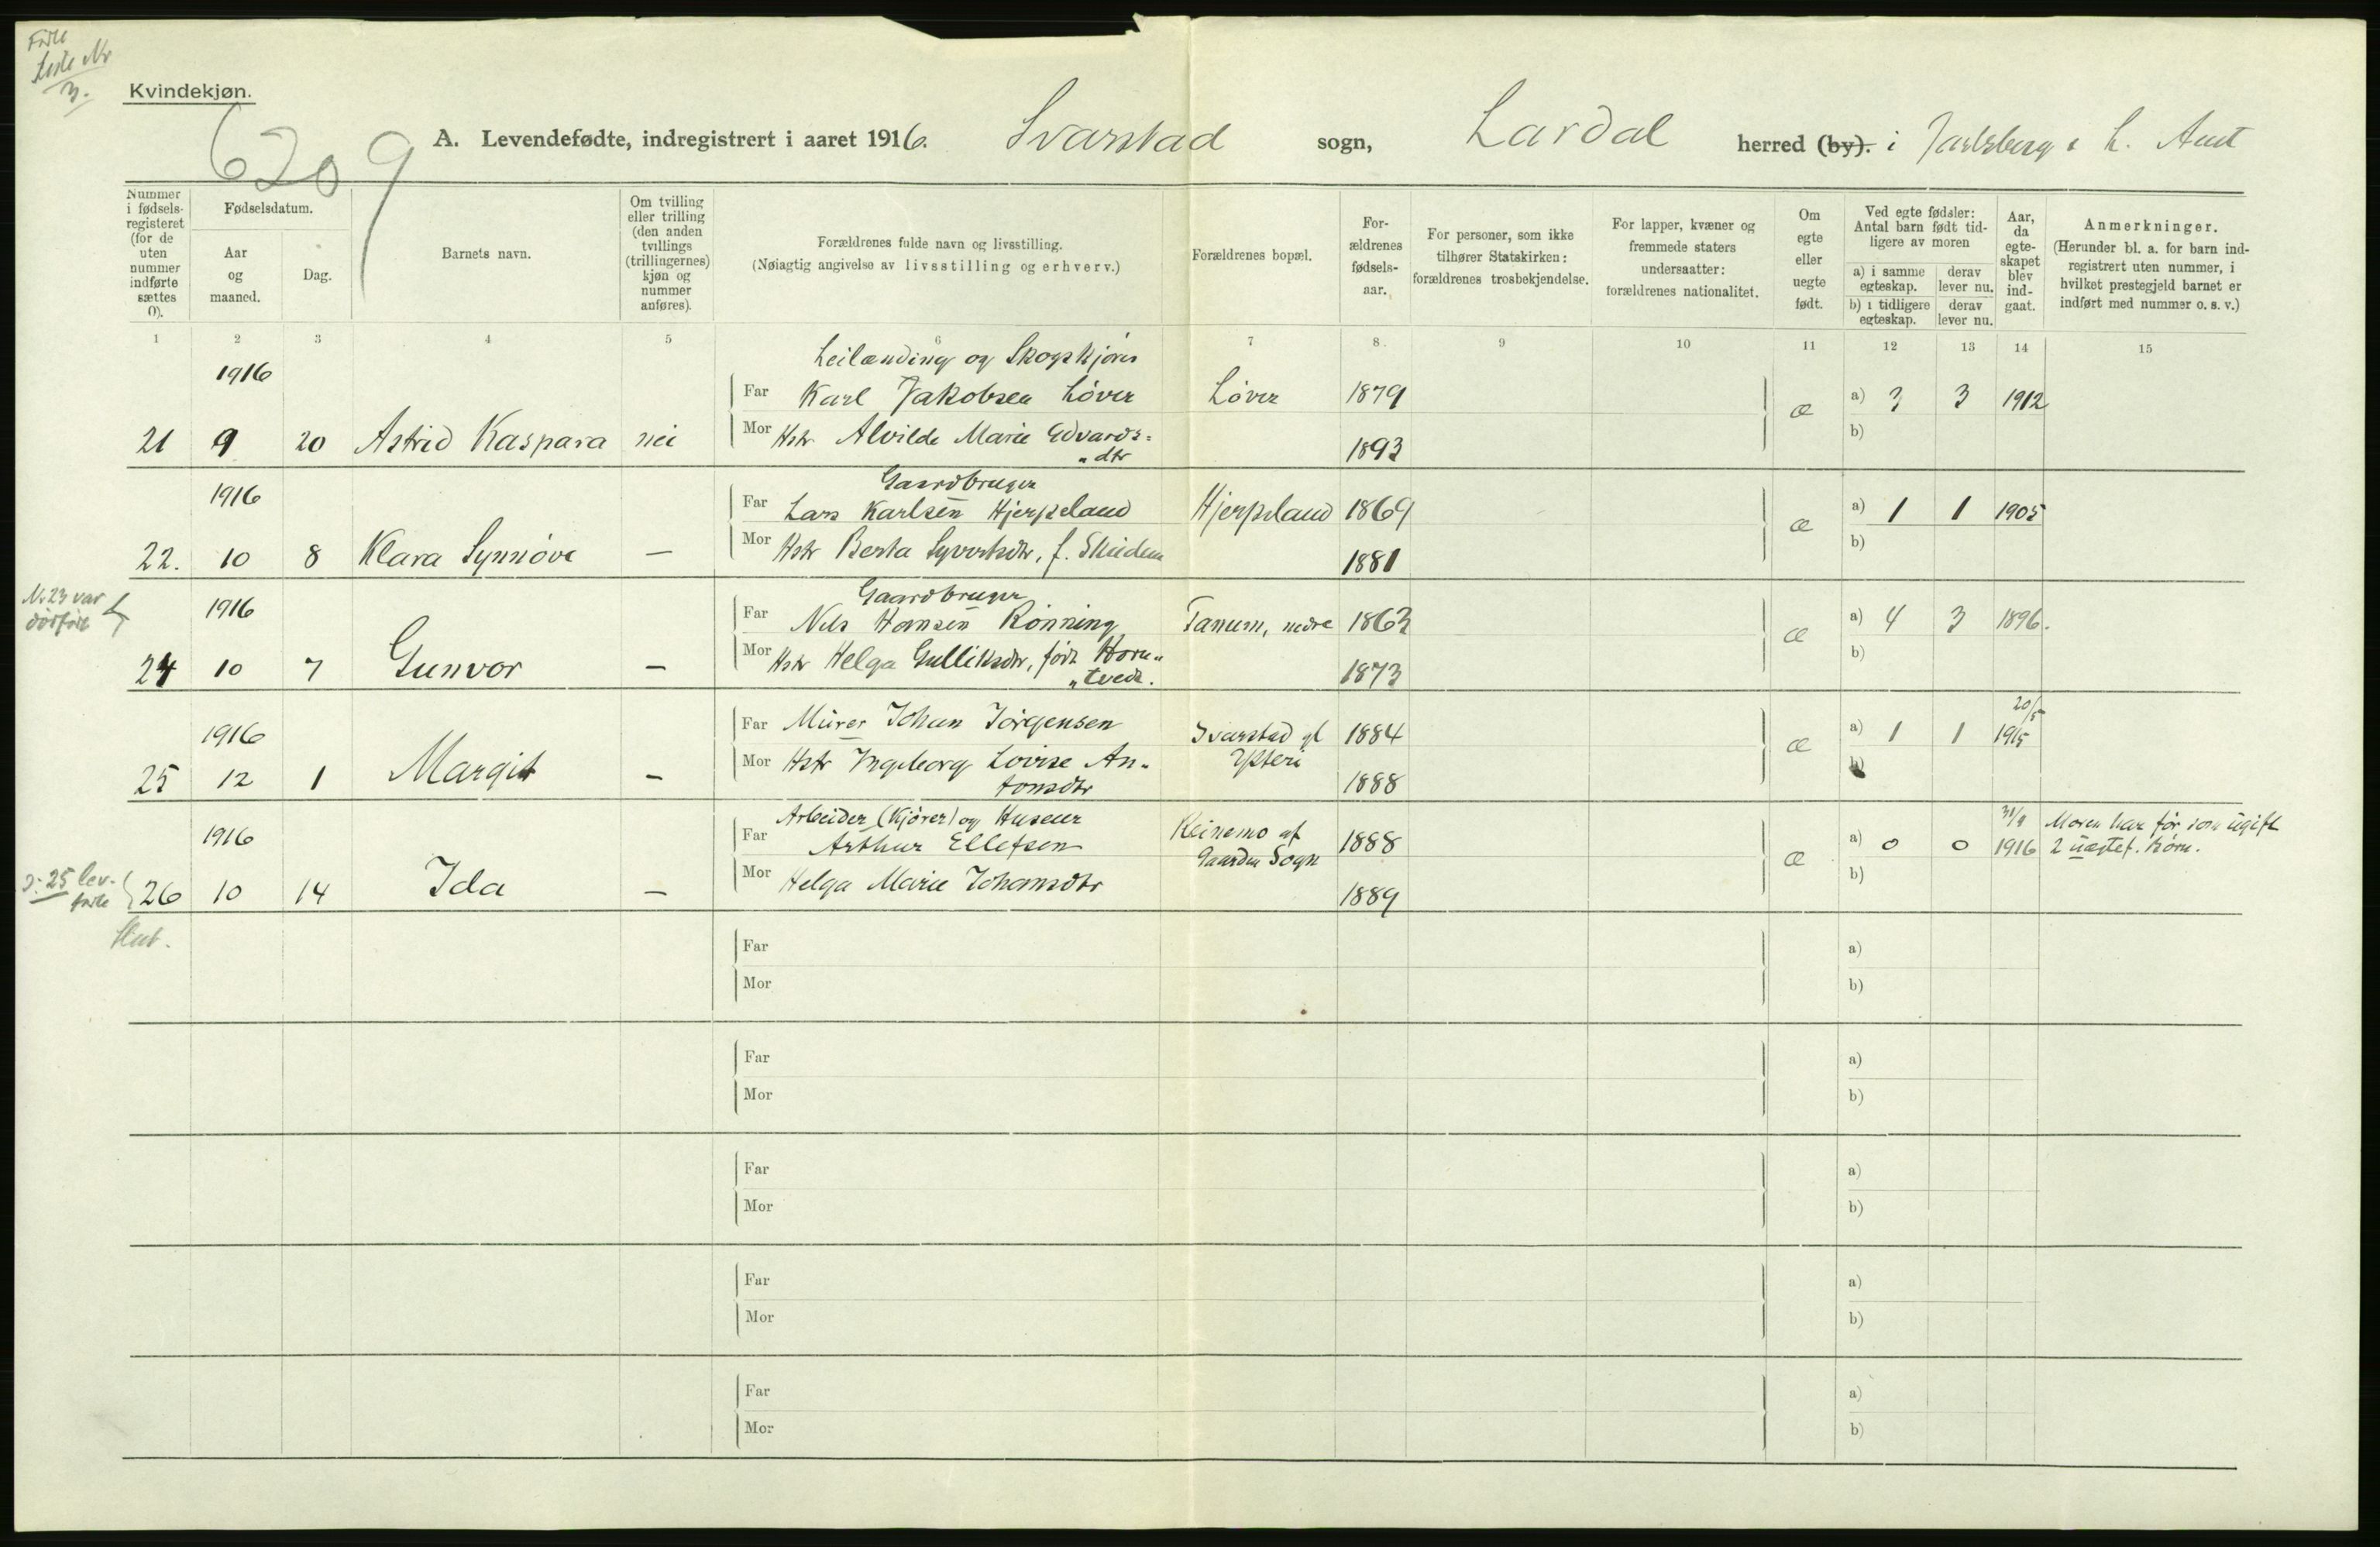 Føde
Liste Nr
3.
Kvindekjøn.
6209
A. Levendefødte, indregistrert i aaret 1916. Svarstad sogn, Lardal herred (by). i Jarlsberg & L. Amt
Nummer
i fødsels-
registeret
(for de
uten
nummer
indførte
sættes
0).
Fødselsdatum.
Aar
og
maaned.
Dag.
Barnets navn.
Om tvilling
eller trilling
(den anden
tvillings
(trillingernes)
kjøn og
nummer
anføres).
Forældrenes fulde navn og livsstilling.
(Nøiagtig angivelse av livsstilling og erhverv.)
Forældrenes bopæl.
For-
ældrenes
fødsels-
aar.
For personer, som ikke
tilhører Statskirken:
forældrenes trosbekjendelse.
For lapper, kvæner og
fremmede staters
undersaatter:
forældrenes nationalitet.
Om
egte
eller
uegte
født.
Ved egte fødsler:
Antal barn født tid-
ligere av moren
a) i samme
egteskap.
derav
lever nu.
b) i tidligere
egteskap.
derav
lever nu.
Aar,
da
egte-
skapet
blev
ind-
gaat.
Anmerkninger.
(Herunder bl. a. for barn ind-
registrert uten nummer, i
hvilket prestegjeld barnet er
indført med nummer o. s. v.)
1 2 3 4 5 6 7 8 9 10 11 12 13 14 15
Leilænding og Skogskjører
1916
Far Karl Jakobsen Løver Løver 1879 æ a) 3 3 1912
21 9 20 Astrid Kaspara nei Mor Hstr Alvilde Marie Edvards= 1893 b)
"dtr
Gaardbruger
1916 Far Lars Karlsen Hjerpeland Hjerpeland 1869 æ a) 1 1 1905
22. 10 8 Klara Synnøve — Mor Hstr Berta Syvertsdtr, f. 1881 b)
Nr 23 var
dødføde
Gaardbruger
1916 Far Nels Hansen Rønning Tanum, nedre 1863 æ a) 4 3 1896.
24 10 7 Gunvor — Mor Hstr Helga Gulliksdtr, født Horn" 1873 b)
"tvedt.
20/5
1916 Far Murer Johan Jørgensen Svarstad gl 1884 æ a) 1 1 1915
25 12 1 Margit — Mor Hstr Ingeborg Lovise An- 1888 b)
tonsdtr
Arbeider (Kjører) og Huseier 31/9 Moren har før som ugift
1916 Far Arthur Ellefsen Reinemo af 1888 æ a) 0 0 1916 2 uægtef. Børn.
Gaarden Sogn
ɔ: 25 lev.
føde
26 10 14 Ida — Mor Helga Marie Johansdtr 1889 b)
Slut.
Far a)
Mor b)
Far a)
Mor b)
Far a)
Mor b)
Far a)
Mor b)
Far a)
Mor b)